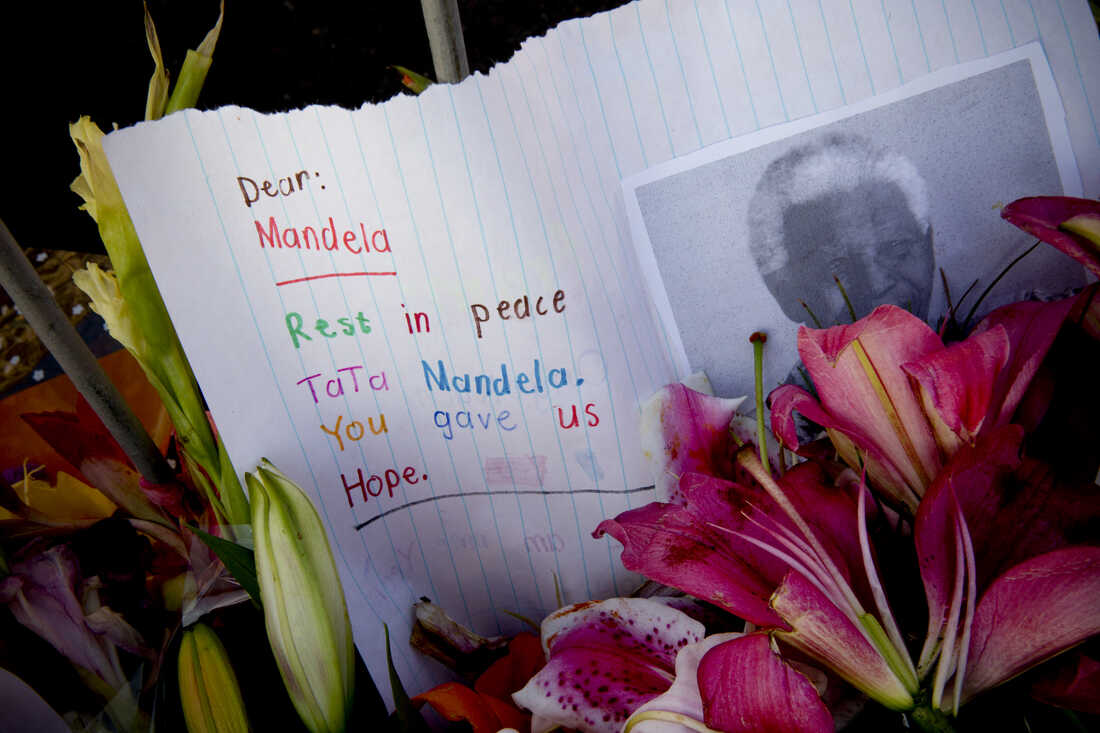 Dear:
Mandela
Rest in peace
TaTa Mandela.
You gave us
Hope.